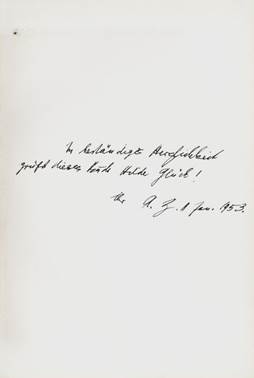 In beständiger Herzlichkeit
grüßt dieses Hilde Glück!
Ihr A. Z. 1 Jan. 1953.